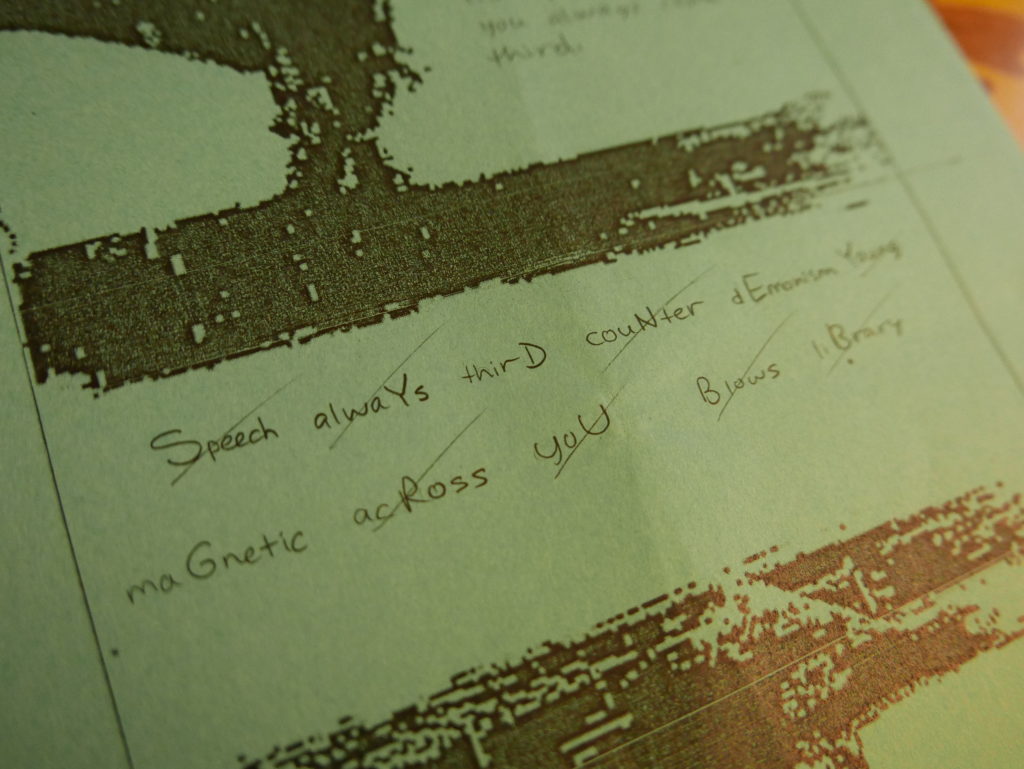 you always
third.
Speech alwaYs thirD couNter dEmonism Young
maGnetic acRoss yoU Blows liBrary